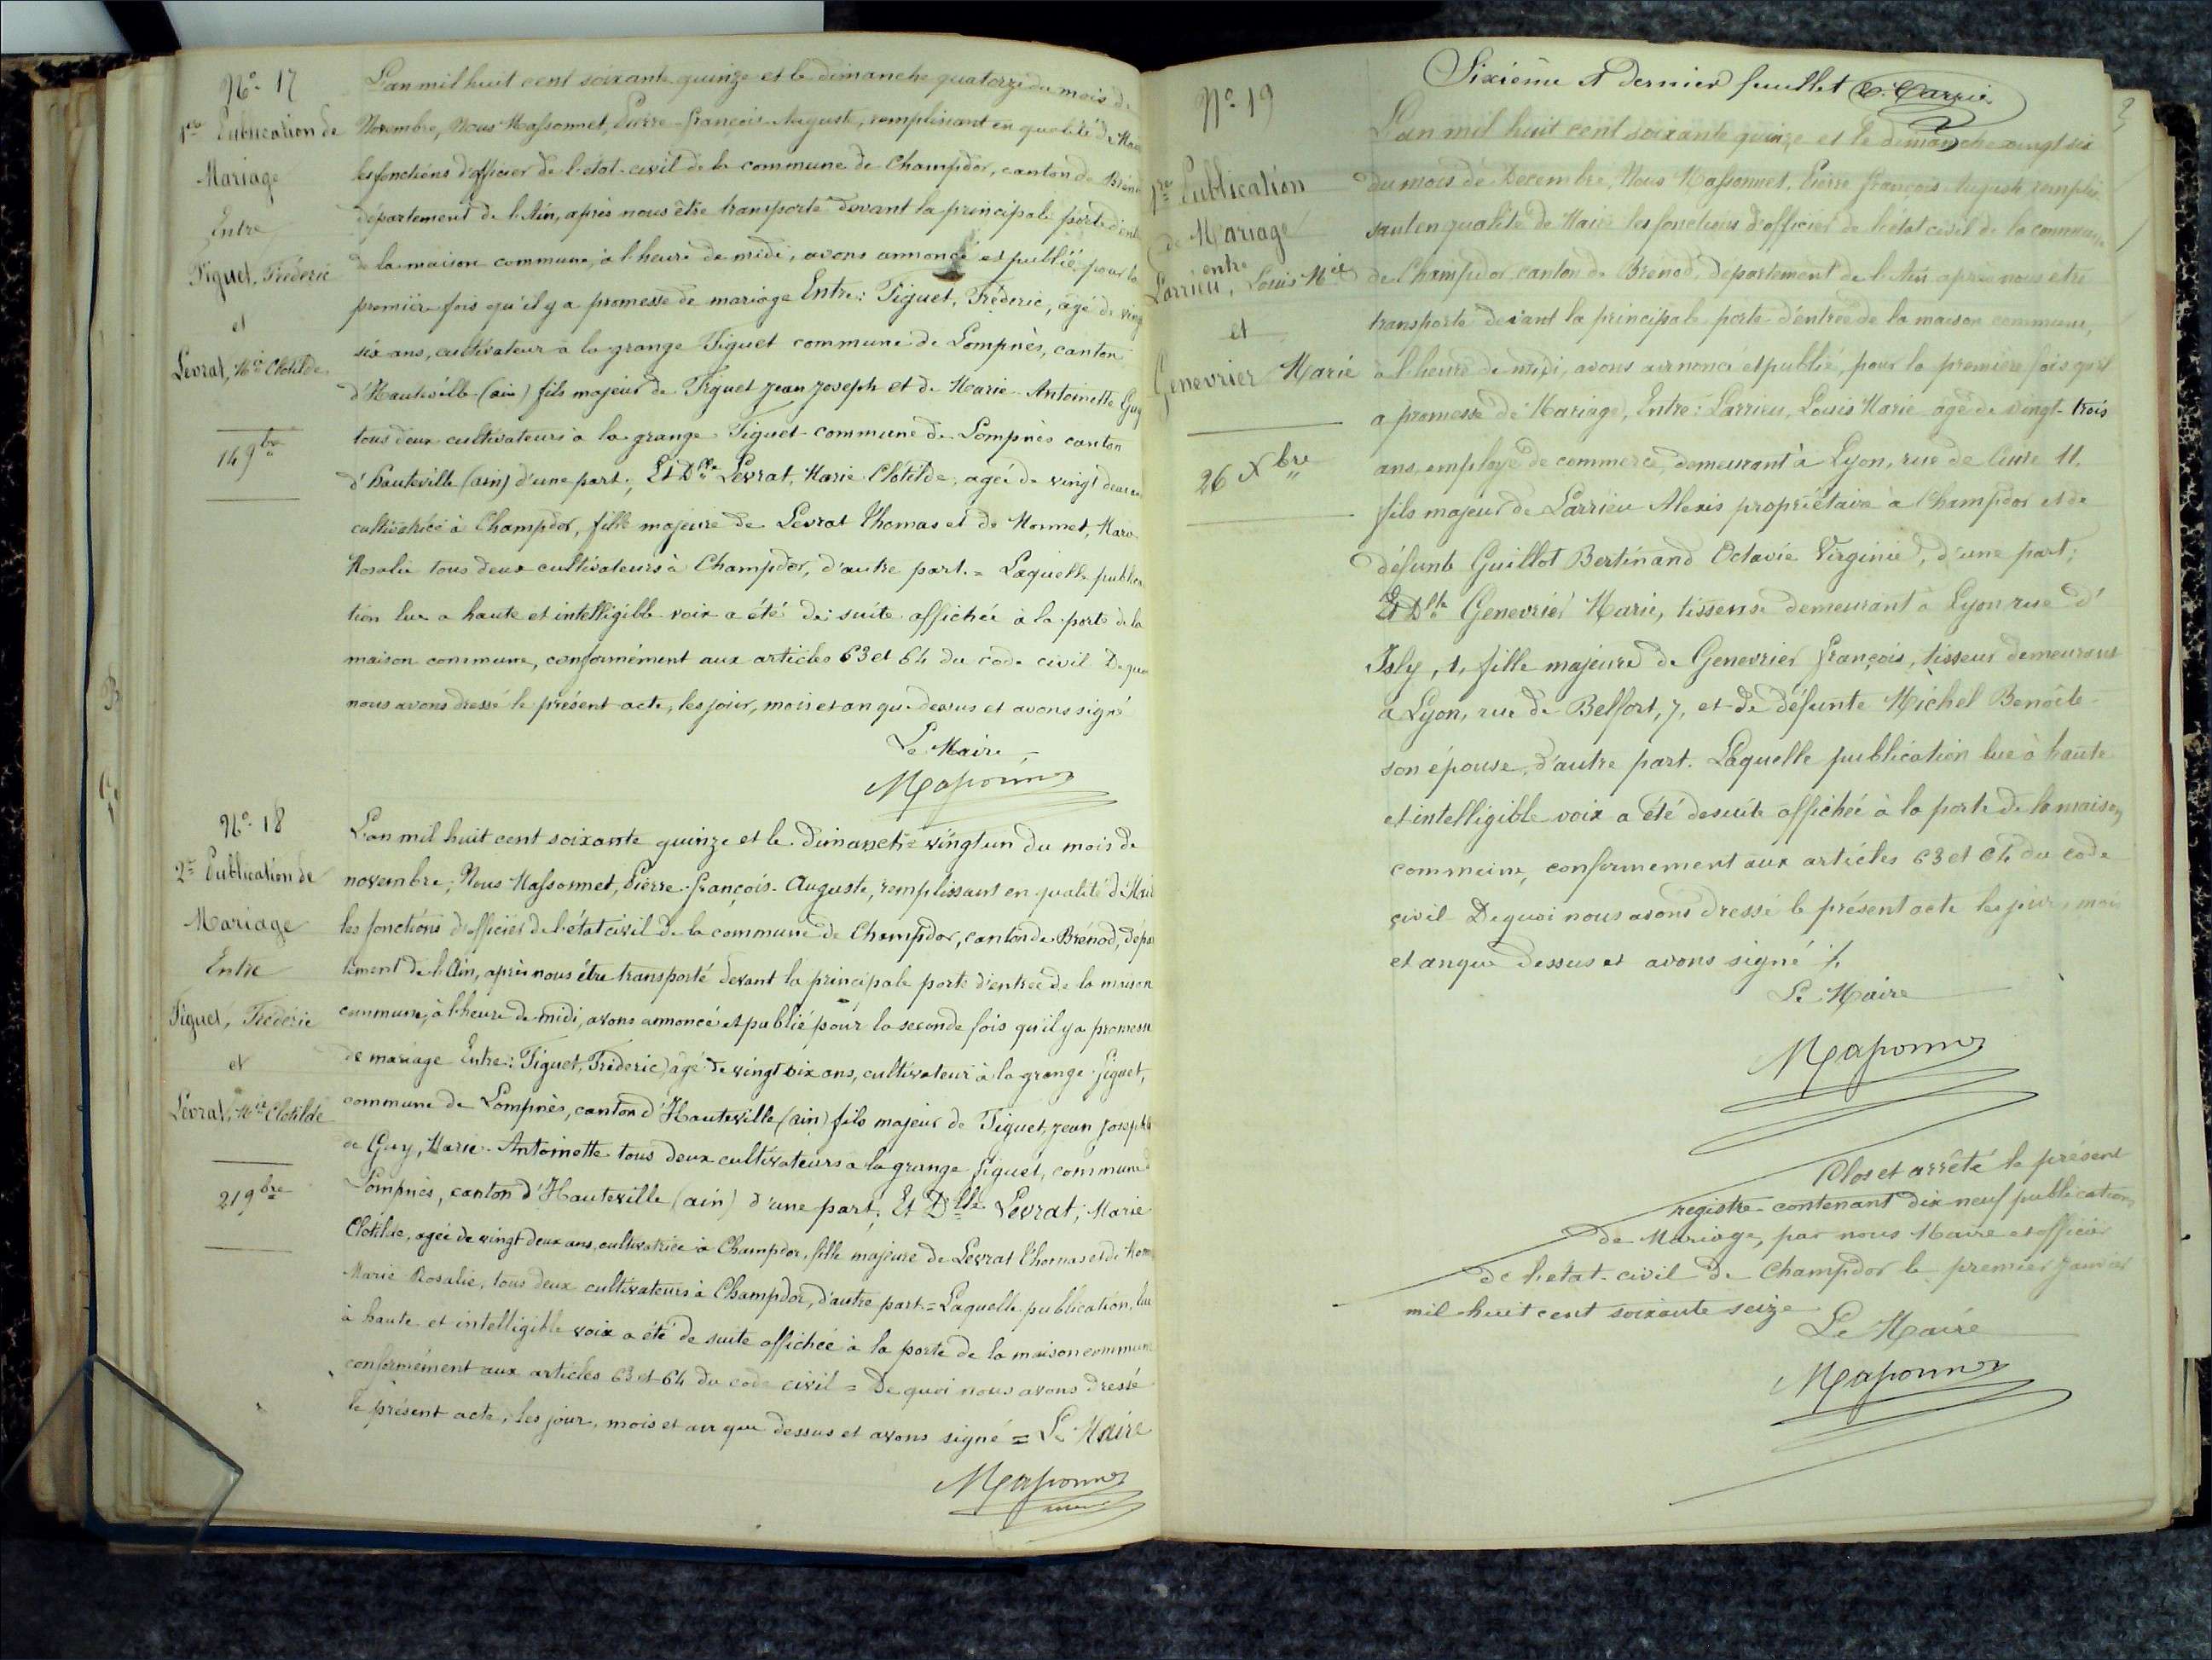 No. 17
1ère Publication de
Mariage
Entre
Figuet, Fréderic
et
Levrat, Mie Clotilde
14 9bre
L'an mil huit cent soixante quinze et le dimanche quatorze du mois de
Novembre, Nous Massonnet, Pierre-François-Auguste, remplissant en qualité de Maire
les fonctions d'officier de l'etat-civil de la commune de Champdor, canton de Bréno
département de l'Ain, après nous être transporté devant la principale porte d'ent
de la maison commune, à l'heure de midi, avons annoncé et publié pour la
premiere fois qu'il y a promesse de mariage Entre: Figuet, Fréderic, âgé de vingt
six ans, cultivateur à la grange Figuet commune de Lompnès, canton
d'Hauteville (ain) fils majeur de Figuet Jean Joseph et de Marie-Antoinette Guy
tous deux cultivateurs à la grange Figuet commune de Lompnès canton
d'hauteville (ain) d'une part; Et Dlle Levrat, Marie Clotilde, agée de vingt deux an
cultivatrice à Champdor, fille majeure de Levrat Thomas et de Monnet, Marie
Rosalie tous deux cultivateurs à Champdor, d'autre part. = Laquelle publica
tion lue a haute et intelligible voix a été de suite affichée à la porte de la
maison commune, conformément aux articles 63 et 64 du code civil De quoi
nous avons dressé le présent acte, les jour, mois et an que dessus et avons signé
Le Maire
Massonnet
No. 18
2e Publication de
Mariage
Entre
Figuet, Fréderic
et
Levrat, Mie Clotilde
21 9bre
L'an mil huit cent soixante quinze et le dimanche vingt un du mois de
novembre, Nous Massonnet, Pierre-François-Auguste, remplissant en qualité de Mair
les fonctions d'officier de l'état civil de la commune de Champdor, canton de Brénod, dépar
tement de l'Ain, après nous être transporté devant la principale porte d'entrée de la maison
commune, à l'heure de midi, avons annoncé et publié pour la seconde fois qu'il y a promesse
de mariage Entre: Figuet, Fréderic, âgé de vingt six ans, cultivateur à la grange Figuet,
commune de Lompnès, canton d'Hauteville (ain) fils majeur de Figuet, Jean Joseph et
de Guy, Marie-Antoinette tous deux cultivateurs à la grange Figuet, commune d
Lompnès, canton d'Hauteville (ain) d'une part; Et Dlle Levrat, Marie
Clotilde, agée de vingt deux ans, cultivatrice à Champdor, fille majeure de Levrat Thomas et de Monn
Marie Rosalie, tous deux cultivateurs à Champdor, d'autre part = Laquelle publication, lue
à haute et intelligible voix a été de suite affichée à la porte de la maison commune
conformément aux articles 63 et 64 du code civil = De quoi nous avons dressé
le présent acte, les jour, mois et an que dessus et avons signé = Le Maire
Massonnet
Sixième et dernier feuillet
No. 19
1re Publication
de Mariage
entre
Larrieu, Louis Mie
et
Genevrier Marie
26 Xbre
L'an mil huit cent soixante quinze et le dimanche vingt six
du mois de Decembre, Nous Massonnet, Pierre François Auguste remplis
sant en qualité de Maire les fonctions d'officier de l'état civil de la commune
de Champdor canton de Brénod, département de l'Ain après nous être
transporté devant la principale porte d'entrée de la maison commune,
à l'heure de midi, avons annoncé et publié, pour la première fois qu'il
a promesse de Mariage, Entre: Larrieu, Louis Marie agé de vingt-trois
ans, employé de commerce, demeurant à Lyon, rue de Cuire 11,
fils majeur de Larrieu Alexis propriétaire à Champdor et de
défunte Guillot Bertinand Octavie Virginie, d'une part;
Et Dlle Genevrier Marie, tisseuse demeurant à Lyon rue d'
Isly, 1, fille majeure de Genevrier François, tisseur demeurant
à Lyon, rue de Belfort, 7, et de défunte Michel Benoîte
son épouse, d'autre part. Laquelle publication lue à haute
et intelligible voix a été desuite affichée à la porte de la maison
commune, conformement aux articles 63 et 64 du code
civil De quoi nous avons dressé le présent acte les jour, mois
et an que dessus et avons signé
Le Maire
Massonnet
Clos et arrêté le présent
registre contenant dix neuf publications
de Mariage, par nous Maire et officier
de l'état-civil de Champdor le premier Janvier
mil huit cent soixante seize
Le Maire
Massonnet